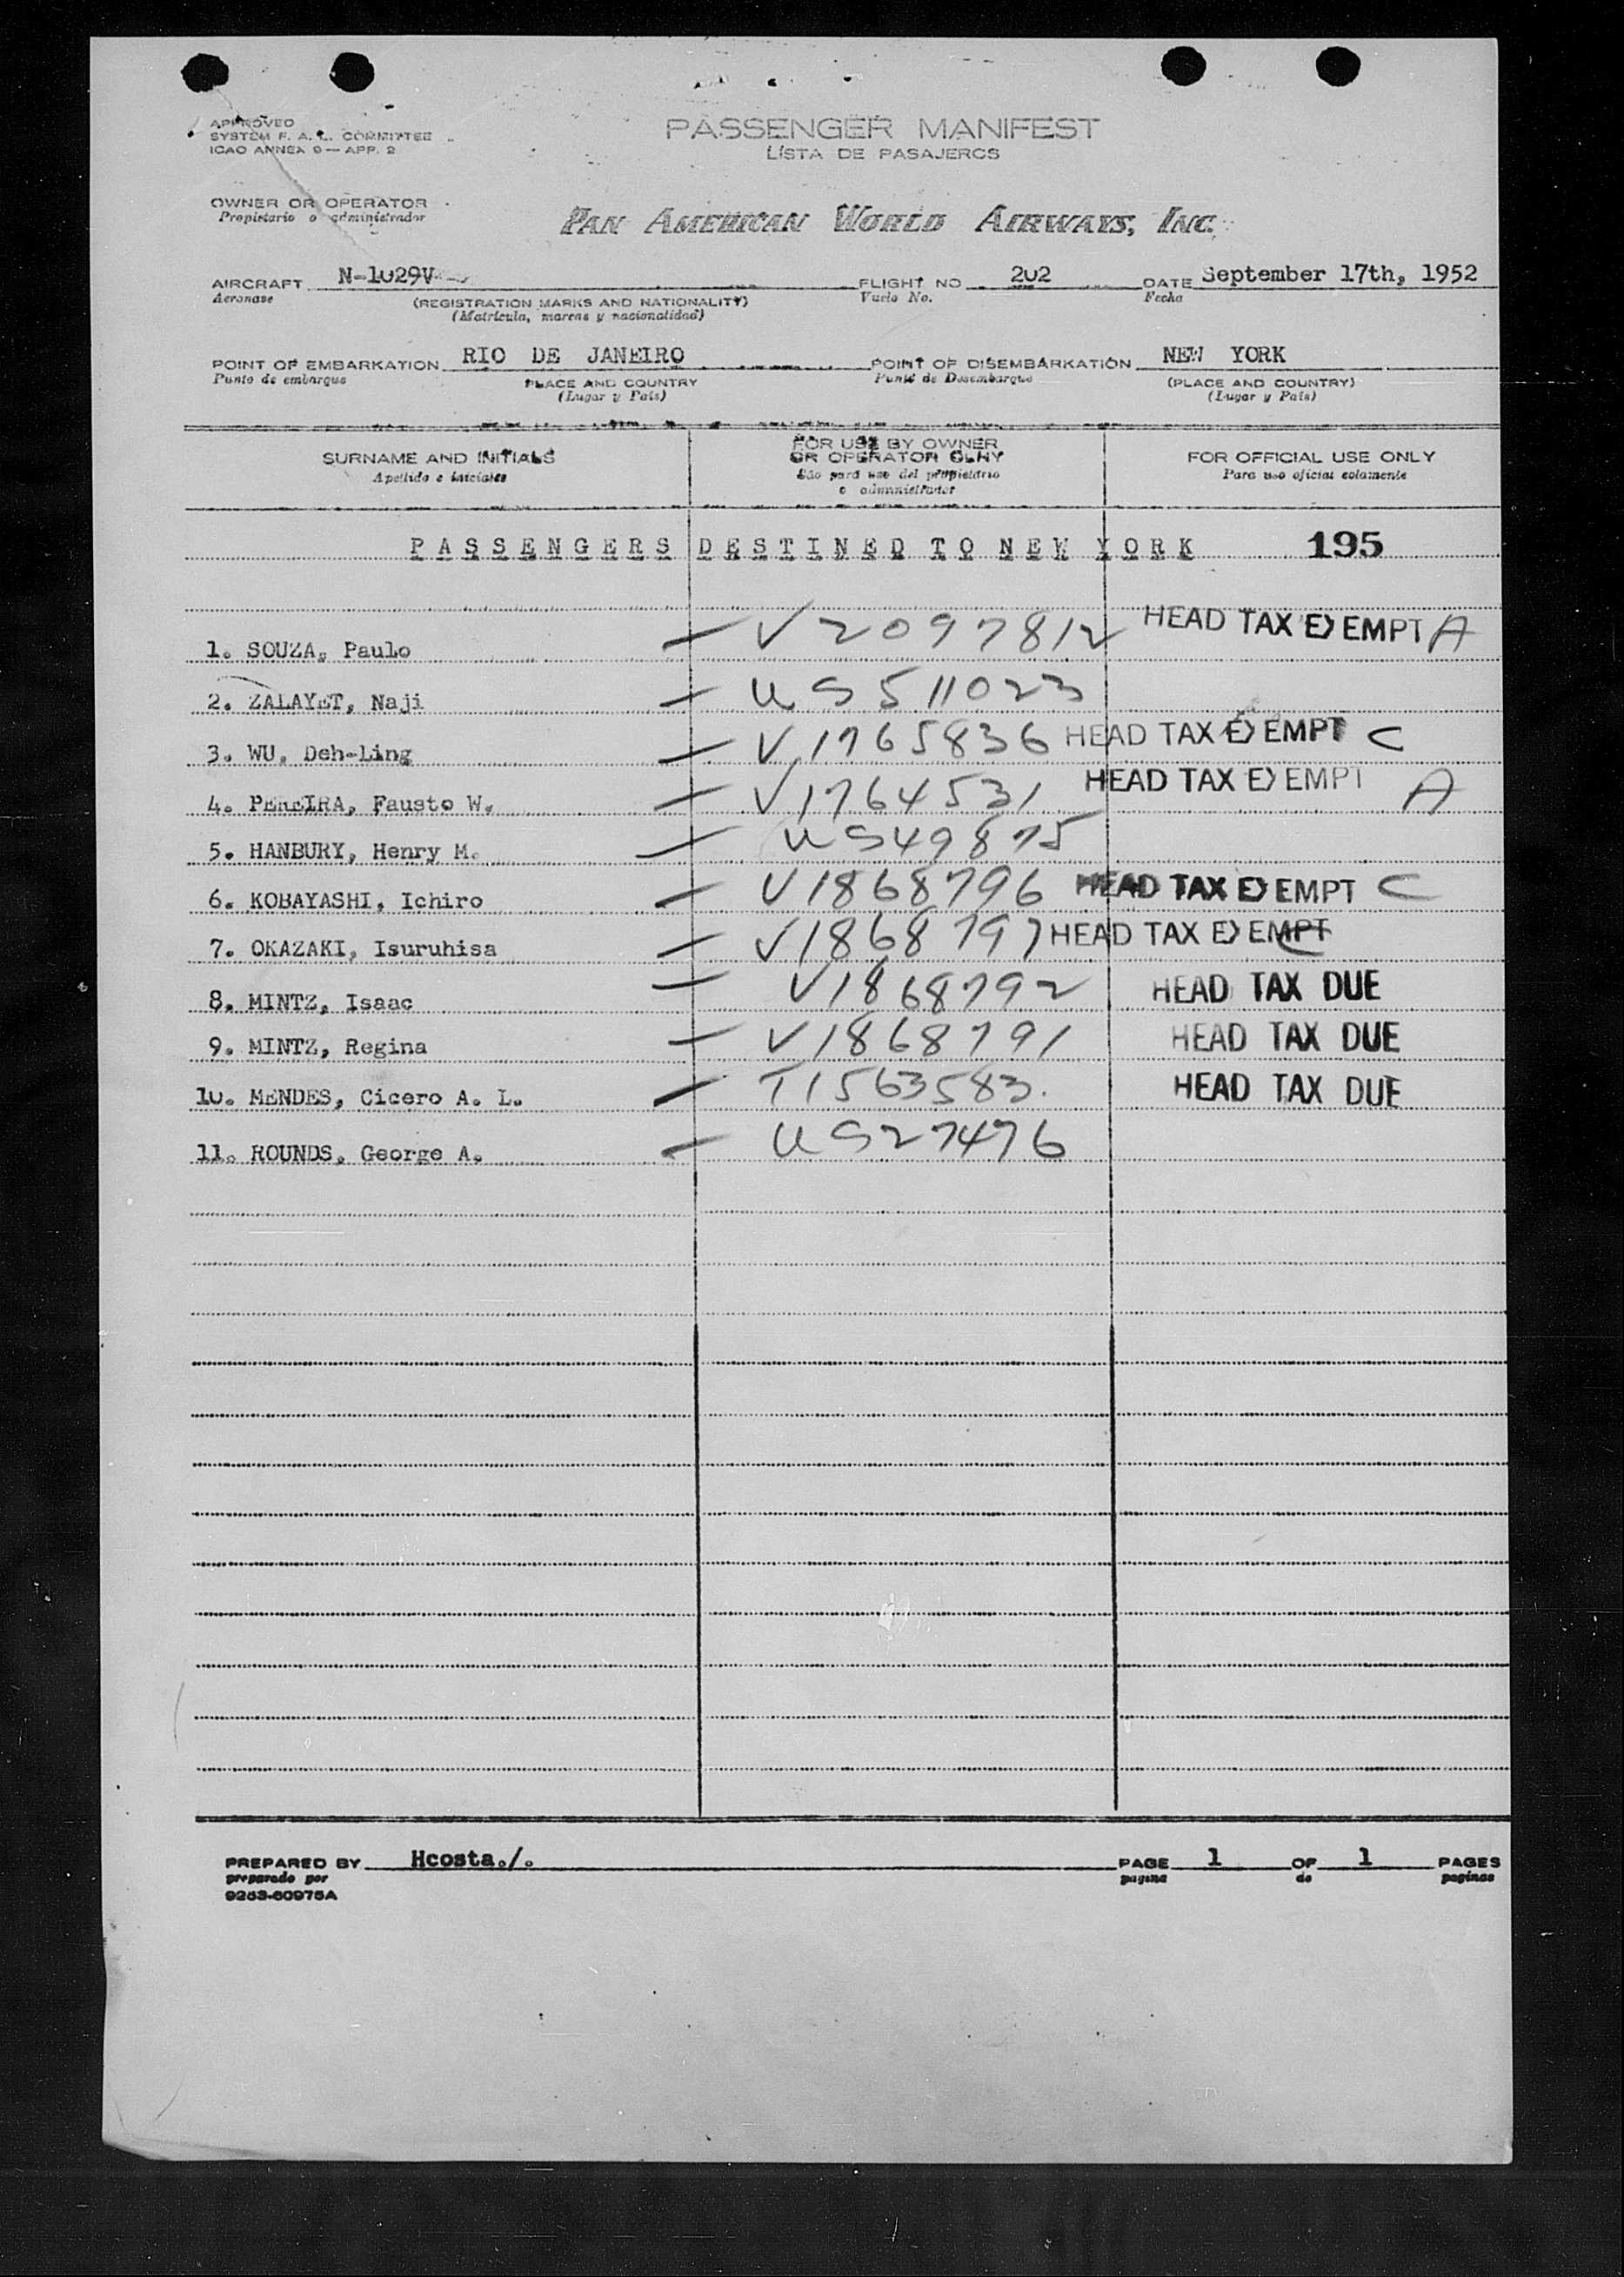 APPROVED
SYSTEM F. A. L. COMMITTEE
ICAO ANNEX 9 — APP. 2
PASSENGER MANIFEST
LISTA DE PASAJEROS
OWNER OR OPERATOR
Propietario o administrador
PAN AMERICAN WORLD AIRWAYS, INC.
AIRCRAFT N-1029V FLIGHT NO 202 DATE September 17th, 1952
Aeronave (REGISTRATION MARKS AND NATIONALITY) Vuelo No. Fecha
(Matrícula, marcas y nacionalidad)
POINT OF EMBARKATION RIO DE JANEIRO POINT OF DISEMBARKATION NEW YORK
Punto de embarque PLACE AND COUNTRY Punto de Desembarque (PLACE AND COUNTRY)
(Lugar y País) (Lugar y País)
SURNAME AND INITIALS FOR USE BY OWNER OR OPERATOR ONLY FOR OFFICIAL USE ONLY
Apellido e iniciales Sólo para uso del propietario o administrador Para uso oficial solamente
PASSENGERS DESTINED TO NEW YORK 195
1. SOUZA, Paulo — V2097812 HEAD TAX EXEMPT A
2. ZALAYET, Naji — US 511023
3. WU, Deh-Ling — V1765836 HEAD TAX EXEMPT C
4. PEREIRA, Fausto W. — V1764531 HEAD TAX EXEMPT A
5. HANBURY, Henry M. — US49875
6. KOBAYASHI, Ichiro — V1868796 HEAD TAX EXEMPT C
7. OKAZAKI, Isuruhisa — V1868797 HEAD TAX EXEMPT C
8. MINTZ, Isaac — V1868792 HEAD TAX DUE
9. MINTZ, Regina — V1868791 HEAD TAX DUE
10. MENDES, Cicero A. L. — T1563583. HEAD TAX DUE
11. ROUNDS, George A. — US27476
PREPARED BY Hcosta./. PAGE 1 OF 1 PAGES
preparado por pagina de paginas
9263-60975A